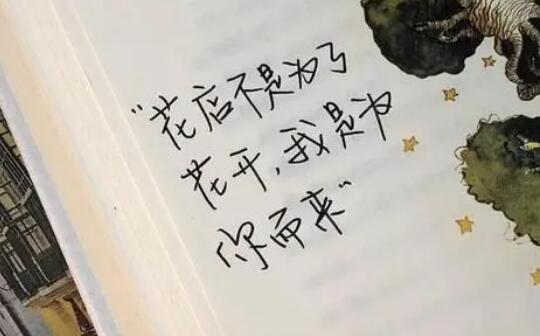 "花店不是为了
花开,我是为
你而来"